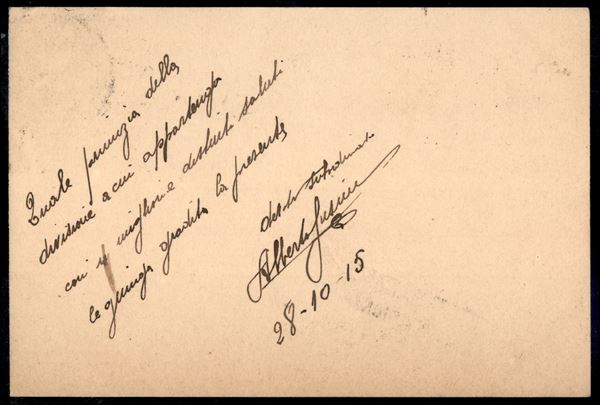 Quale primizia della
divisione a cui appartengo
con i migliori e distinti saluti
le giunga gradita la presente
dev.mo subordinato
Alberto
28-10-15